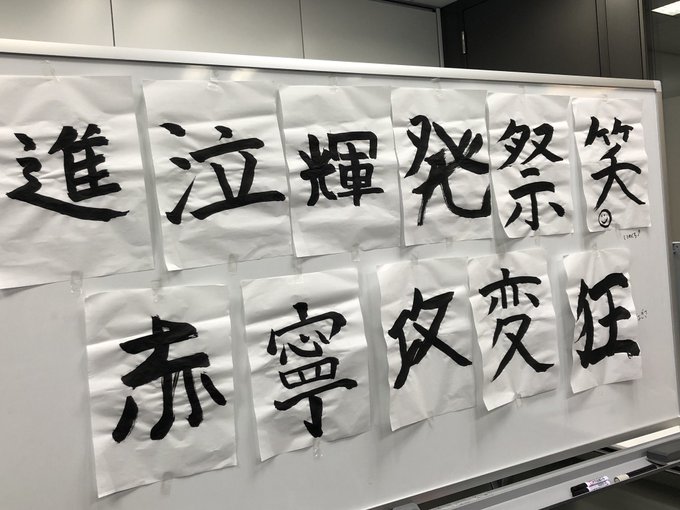 進 泣 輝 発 祭 笑
赤 寧 攻 変 狂